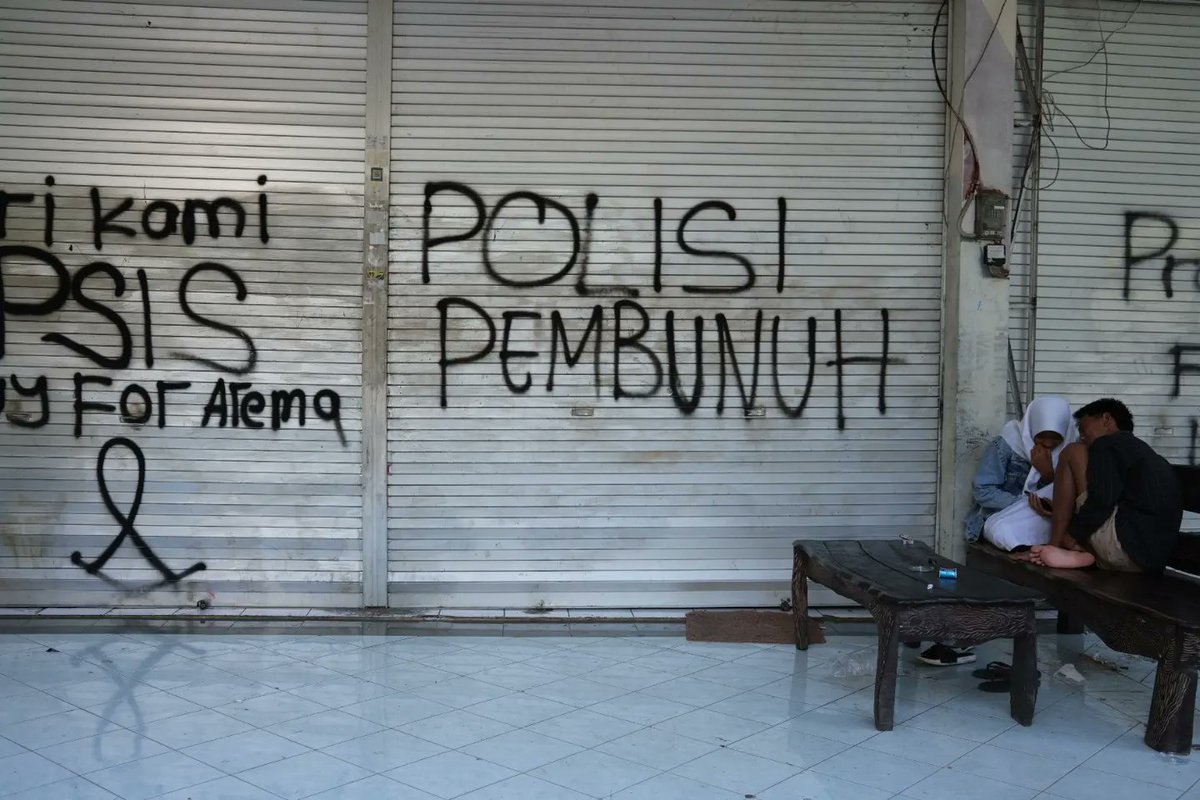 ri kami
PSIS
For Arema
POLISI
PEMBUNUH